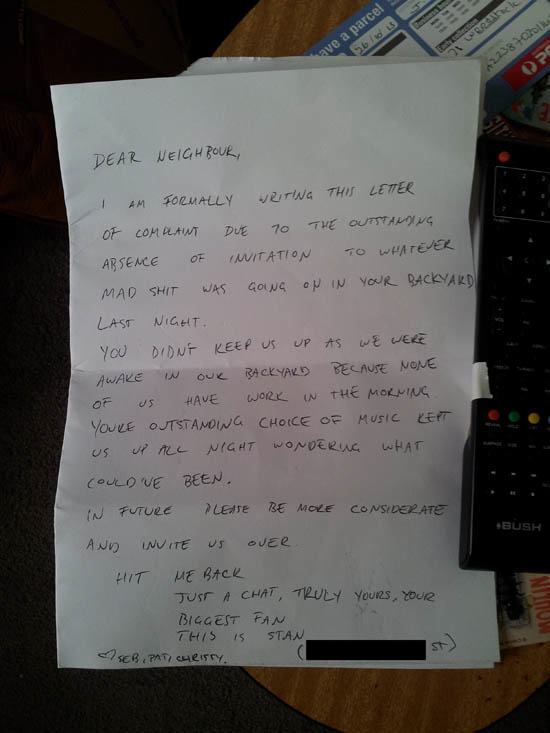 have a parcel
26/10/13
DEAR NEIGHBOUR,
I AM FORMALLY WRITING THIS LETTER
OF COMPLAINT DUE TO THE OUTSTANDING
ABSENCE OF INVITATION TO WHATEVER
MAD SHIT WAS GOING ON IN YOUR BACKYARD
LAST NIGHT.
YOU DIDN'T KEEP US UP AS WE WERE
AWAKE IN OUR BACKYARD BECAUSE NONE
OF US HAVE WORK IN THE MORNING.
YOURE OUTSTANDING CHOICE OF MUSIC KEPT
US UP ALL NIGHT WONDERING WHAT
COULD'VE BEEN.
IN FUTURE PLEASE BE MORE CONSIDERATE
AND INVITE US OVER.
HIT ME BACK
JUST A CHAT, TRULY YOURS, YOUR
BIGGEST FAN
THIS IS STAN
( ST)
♡ SEB, PAT, CHRISSY.
BUSH